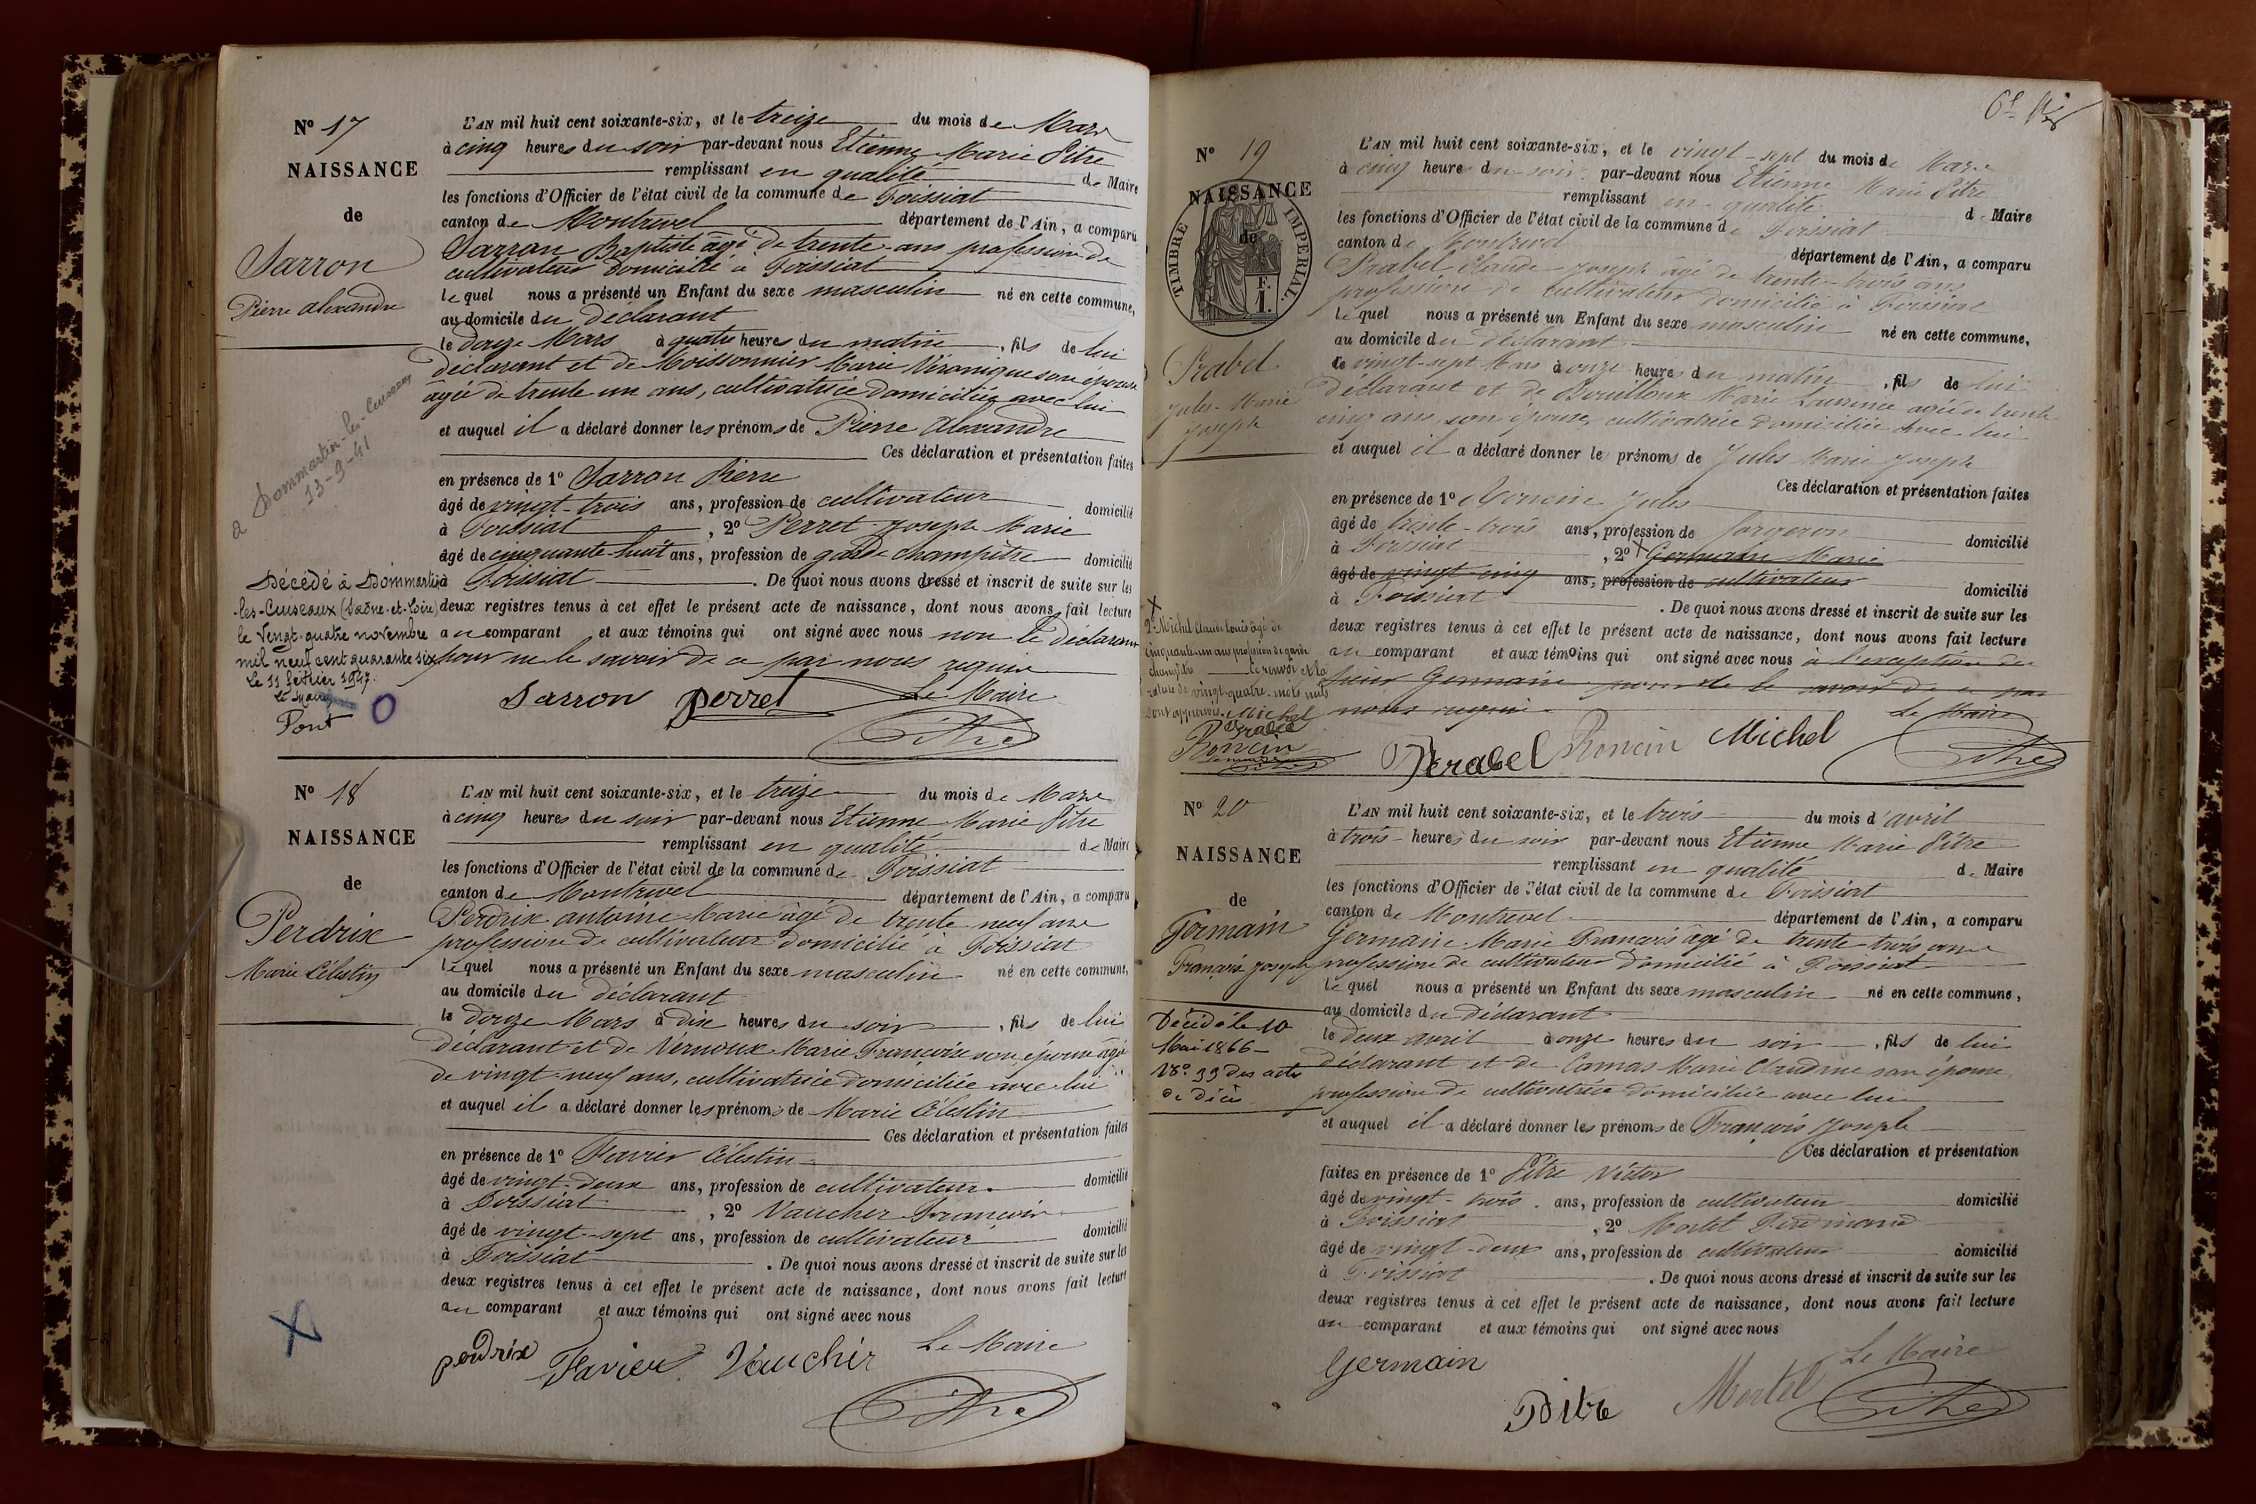 N° 17
NAISSANCE
de
Sarron
Pierre Alexandre
a Dommartin-les-Cuiseaux
13-9-41
Décédé à Dommartin
les-Cuiseaux (Saône-et-Loire)
le Vingt-quatre novembre
mil neuf cent quarante six
le 11 février 1947.
Le Maire
Pont
L'AN mil huit cent soixante-six, et le treize du mois de Mars
à cinq heures du soir par-devant nous Etienne Marie Pitre
remplissant en qualité de Maire
les fonctions d'Officier de l'état civil de la commune de Foissiat
canton de Montrevel département de l'Ain, a comparu
Sarron Baptiste âgé de trente ans profession de
cultivateur domicilié à Foissiat
lequel nous a présenté un Enfant du sexe masculin né en cette commune,
au domicile du declarant
le douze Mars à quatre heures du matin, fils de lui
déclarant et de Moissonnier Marie Véronique son épouse
âgée de trente un ans, cultivatrice domiciliée avec lui
et auquel il a déclaré donner les prénoms de Pierre Alexandre
Ces déclaration et présentation faites
en présence de 1° Sarron Pierre
âgé de vingt-trois ans, profession de cultivateur domicilié
à Foissiat, 2° Perret Joseph Marie
âgé de cinquante huit ans, profession de garde champêtre domicilié
à Foissiat. De quoi nous avons dressé et inscrit de suite sur les
deux registres tenus à cet effet le présent acte de naissance, dont nous avons fait lecture
au comparant et aux témoins qui ont signé avec nous non le déclarant
pour ne le savoir de ce par nous requis
Sarron Perret Le Maire
Pitre
N° 18
NAISSANCE
de
Perdrix
Marie Célestin
L'AN mil huit cent soixante-six, et le treize du mois de Mars
à cinq heures du soir par-devant nous Etienne Marie Pitre
remplissant en qualité de Maire
les fonctions d'Officier de l'état civil de la commune de Foissiat
canton de Montrevel département de l'Ain, a comparu
Perdrix Antoine Marie âgé de trente neuf ans
profession de cultivateur domicilié à Foissiat
lequel nous a présenté un Enfant du sexe masculin né en cette commune,
au domicile du déclarant
le douze Mars à dix heures du soir, fils de lui
déclarant et de Vernoux Marie Françoise son épouse âgée
de vingt-neuf ans, cultivatrice domiciliée avec lui
et auquel il a déclaré donner les prénoms de Marie Célestin
Ces déclaration et présentation faites
en présence de 1° Favier Célestin
âgé de vingt-deux ans, profession de cultivateur domicilié
à Foissiat, 2° Vaucher François
âgé de vingt-sept ans, profession de cultivateur domicilié
à Foissiat. De quoi nous avons dressé et inscrit de suite sur les
deux registres tenus à cet effet le présent acte de naissance, dont nous avons fait lecture
au comparant et aux témoins qui ont signé avec nous
perdrix Favier Vauchér Le Maire
Pitre
N° 19
NAISSANCE
de
TIMBRE IMPERIAL.
1 F.
Prabel
Jules-Marie
Joseph
2° Michel Claude Louis âgé de
cinquante-un ans profession de garde
champêtre le renvoi et la
rature de vingt-quatre mots nuls
sont approuvés. Michel
Prabel
Roncin
Pitre
L'AN mil huit cent soixante-six, et le vingt-sept du mois de Mars
à cinq heures du soir par-devant nous Etienne Marie Pitre
remplissant en qualité de Maire
les fonctions d'Officier de l'état civil de la commune de Foissiat
canton de Montrevel département de l'Ain, a comparu
Prabel Claude Joseph âgé de trente-trois ans
profession de cultivateur domicilié à Foissiat
lequel nous a présenté un Enfant du sexe masculin né en cette commune,
au domicile du déclarant
le vingt-sept Mars à onze heures du matin, fils de lui
déclarant et de Bouilloux Marie Laurence agée de trente
cinq ans, son épouse, cultivatrice domiciliée avec lui
et auquel il a déclaré donner les prénoms de Jules Marie Joseph
Ces déclaration et présentation faites
en présence de 1° Roncin Jules
âgé de trente-trois ans, profession de forgeron domicilié
à Foissiat, 2° Germain Marie
âgé de vingt-cinq ans, profession de cultivateur domicilié
à Foissiat. De quoi nous avons dressé et inscrit de suite sur les
deux registres tenus à cet effet le présent acte de naissance, dont nous avons fait lecture
au comparant et aux témoins qui ont signé avec nous à l'exception du
sieur Germain pour ne le savoir de ce par
nous requis. Le Maire
Prabel Roncin Michel Pitre
N° 20
NAISSANCE
de
Germain
François Joseph
Décédé le 10
Mai 1866
N° 39 des actes
de décès
L'AN mil huit cent soixante-six, et le trois du mois d'avril
à trois heures du soir par-devant nous Etienne Marie Pitre
remplissant en qualité de Maire
les fonctions d'Officier de l'état civil de la commune de Foissiat
canton de Montrevel département de l'Ain, a comparu
Germain Marie François âgé de trente trois ans
profession de cultivateur domicilié à Foissiat
lequel nous a présenté un Enfant du sexe masculin né en cette commune,
au domicile du déclarant
le deux avril à onze heures du soir, fils de lui
déclarant et de Comas Marie Claudine son épouse
profession de cultivatrice domiciliée avec lui
et auquel il a déclaré donner les prénoms de François Joseph
Ces déclaration et présentation
faites en présence de 1° Pitre Victor
âgé de vingt-trois ans, profession de cultivateur domicilié
à Foissiat, 2° Mortel Ferdinand
âgé de vingt-deux ans, profession de cultivateur domicilié
à Foissiat. De quoi nous avons dressé et inscrit de suite sur les
deux registres tenus à cet effet le présent acte de naissance, dont nous avons fait lecture
au comparant et aux témoins qui ont signé avec nous
Germain Pitre Mortel Le Maire
Pitre